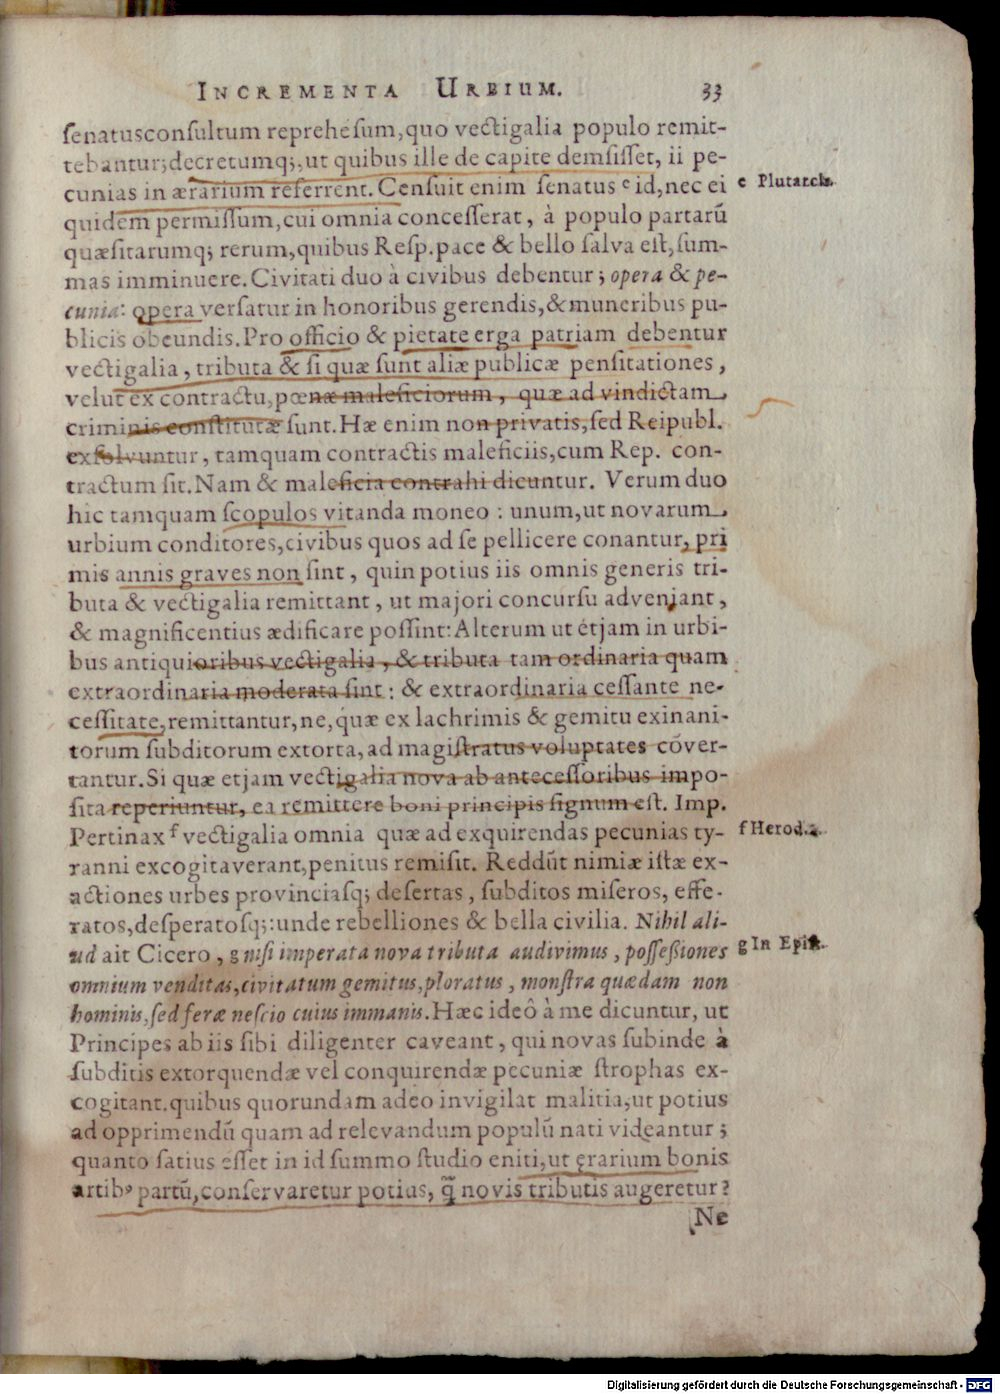 INCREMENTA URBIUM. 33
ſenatusconſultum reprehẽſum,quo vectigalia populo remit-
tebantur;decretumq;,ut quibus ille de capite demſiſſet, ii pe-
cunias in ærarium referrent. Cenſuit enim ſenatus e id, nec ei
e Plutarch.
quidem permiſſum, cui omnia conceſſerat, à populo partarũ
quæſitarumq; rerum,quibus Reſp.pace & bello ſalva eſt, ſum-
mas imminuere. Civitati duo à civibus debentur; opera & pe-
cunia: opera verſatur in honoribus gerendis,& muneribus pu-
blicis obeundis. Pro officio & pietate erga patriam debentur
vectigalia, tributa & ſi quæ ſunt aliæ publicæ penſitationes,
velut ex contractu,pœnæ maleficiorum, quæ ad vindictam
criminis conſtitutæ ſunt. Hæ enim non privatis, ſed Reipubl.
exſolvuntur, tamquam contractis maleficiis,cum Rep. con-
tractum ſit. Nam & maleficia contrahi dicuntur. Verum duo
hic tamquam ſcopulos vitanda moneo: unum,ut novarum
urbium conditores,civibus quos ad ſe pellicere conantur, pri
mis annis graves non ſint, quin potius iis omnis generis tri-
buta & vectigalia remittant, ut majori concurſu advenjant,
& magnificentius ædificare poſſint: Alterum ut étjam in urbi-
bus antiquioribus vectigalia, & tributa tam ordinaria quam
extraordinaria moderata ſint: & extraordinaria ceſſante ne-
ceſſitate, remittantur, ne, quæ ex lachrimis & gemitu exinani-
torum ſubditorum extorta, ad magiſtratus voluptates cõver-
tantur. Si quæ etjam vectigalia nova ab anteceſſoribus impo-
ſita reperiuntur, ea remittere boni principis ſignum eſt. Imp.
Pertinax f vectigalia omnia quæ ad exquirendas pecunias ty-
f Herod.2.
ranni excogitaverant,penitus remiſit. Reddũt nimiæ iſtæ ex-
actiones urbes provinciaſq; deſertas, ſubditos miſeros, effe-
ratos, deſperatoſq;: unde rebelliones & bella civilia. Nihil ali-
ud ait Cicero, g niſi imperata nova tributa audivimus, poſſeßiones
g In Epiſt.
omnium venditas,civitatum gemitus,ploratus, monſtra quædam non
hominis,ſed feræ neſcio cuius immanis. Hæc ideô à me dicuntur, ut
Principes ab iis ſibi diligenter caveant, qui novas ſubinde à
ſubditis extorquendæ vel conquirendæ pecuniæ ſtrophas ex-
cogitant. quibus quorundam adeo invigilat malitia,ut potius
ad opprimendũ quam ad relevandum populũ nati videantur;
quanto ſatius eſſet in id ſummo ſtudio eniti, ut ęrarium bonis
artibꝰ partũ, conſervaretur potius, q̃ novis tributis augeretur?
Ne
Digitalisierung gefördert durch die Deutsche Forschungsgemeinschaft - DFG